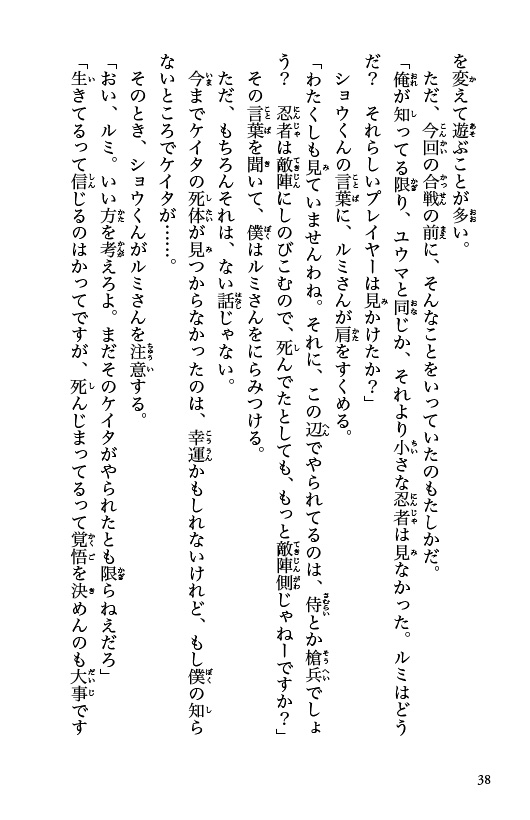 を変えて遊ぶことが多い。
ただ、今回の合戦の前に、そんなことをいっていたのもたしかだ。
「俺が知ってる限り、ユウマと同じか、それより小さな忍者は見なかった。ルミはどう
だ？　それらしいプレイヤーは見かけたか？」
ショウくんの言葉に、ルミさんが肩をすくめる。
「わたくしも見ていませんわね。それに、この辺でやられてるのは、侍とか槍兵でしょ
う？　忍者は敵陣にしのびこむので、死んでたとしても、もっと敵陣側じゃねーですか？」
その言葉を聞いて、僕はルミさんをにらみつける。
ただ、もちろんそれは、ない話じゃない。
今までケイタの死体が見つからなかったのは、幸運かもしれないけれど、もし僕の知ら
ないところでケイタが……。
そのとき、ショウくんがルミさんを注意する。
「おい、ルミ。いい方を考えろよ。まだそのケイタがやられたとも限らねえだろ」
「生きてるって信じるのはかってですが、死んじまってるって覚悟を決めんのも大事です
38